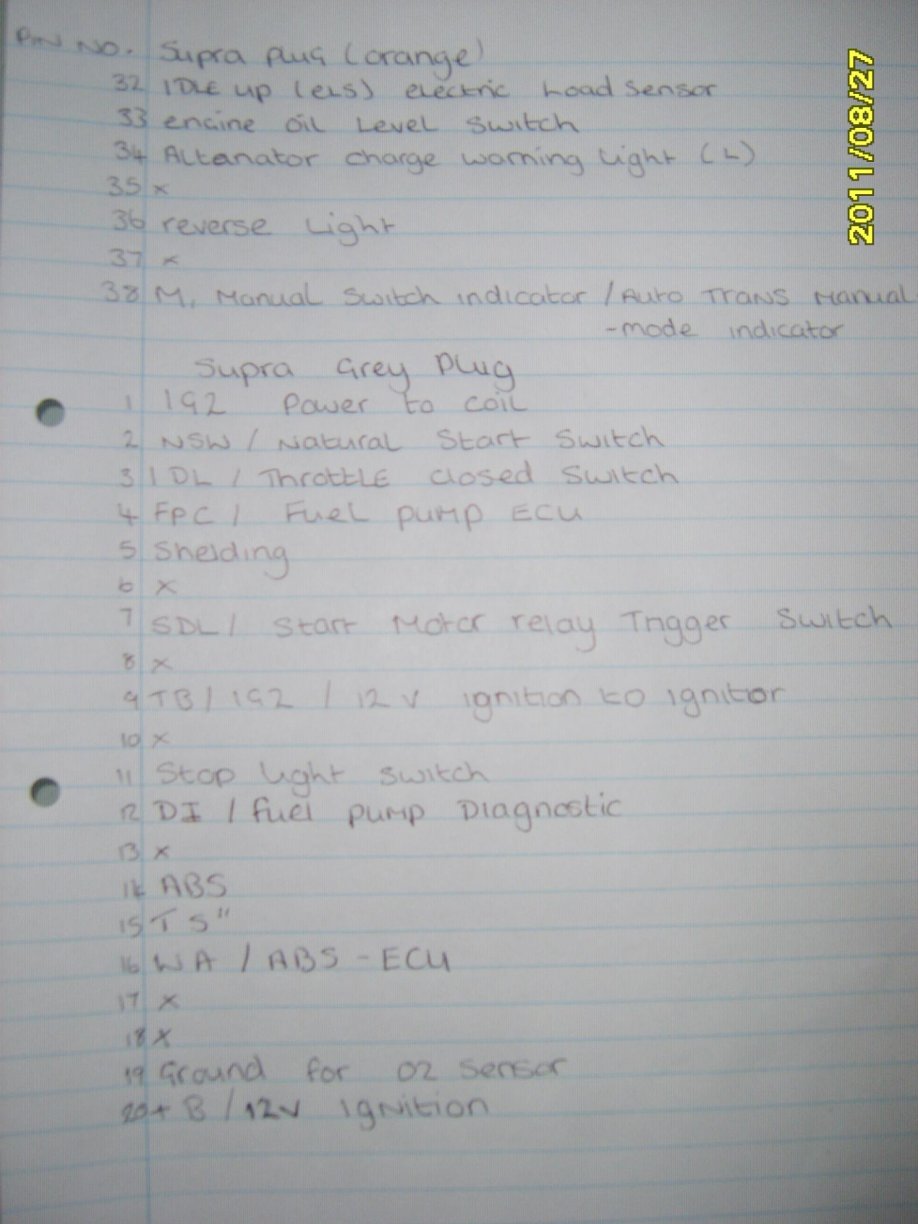 Pin No. Supra plug (orange)
32 IDLE up (els) electric Load Sensor
33 engine oil Level Switch
34 Altanator charge warning light (L)
35 x
36 reverse Light
37 x
38 M, Manual Switch indicator / Auto TRANS Manual
-mode indicator
Supra Grey Plug
1 IG2 Power to coil
2 NSW / Natural Start Switch
3 IDL / ThrottLE closed Switch
4 FPC / Fuel pump ECU
5 Sheilding
6 x
7 SDL / Start Motor relay Trigger Switch
8 x
9 TB / IG2 / 12 V ignition to ignitor
10 x
11 Stop light switch
12 DI / fuel pump Diagnostic
13 x
14 ABS
15 TS"
16 WA / ABS - ECU
17 x
18 x
19 Ground for O2 Sensor
20 + B / 12v Ignition
2011/08/27